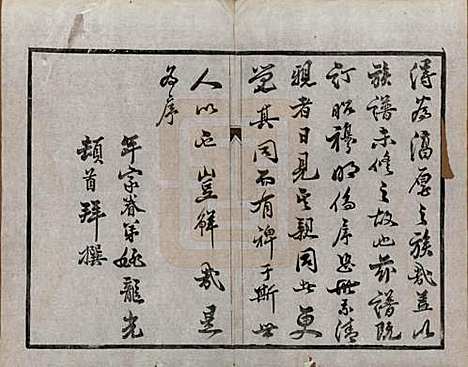 得為厚之族哉蓋以
族譜未修之故也茲譜既
訂昭穆明倫序世系清
親者日見其親同此更
覺其同而有裨于斯世
人心豈鮮哉是
為序
年宗眷弟姚龍光
頓首拜撰